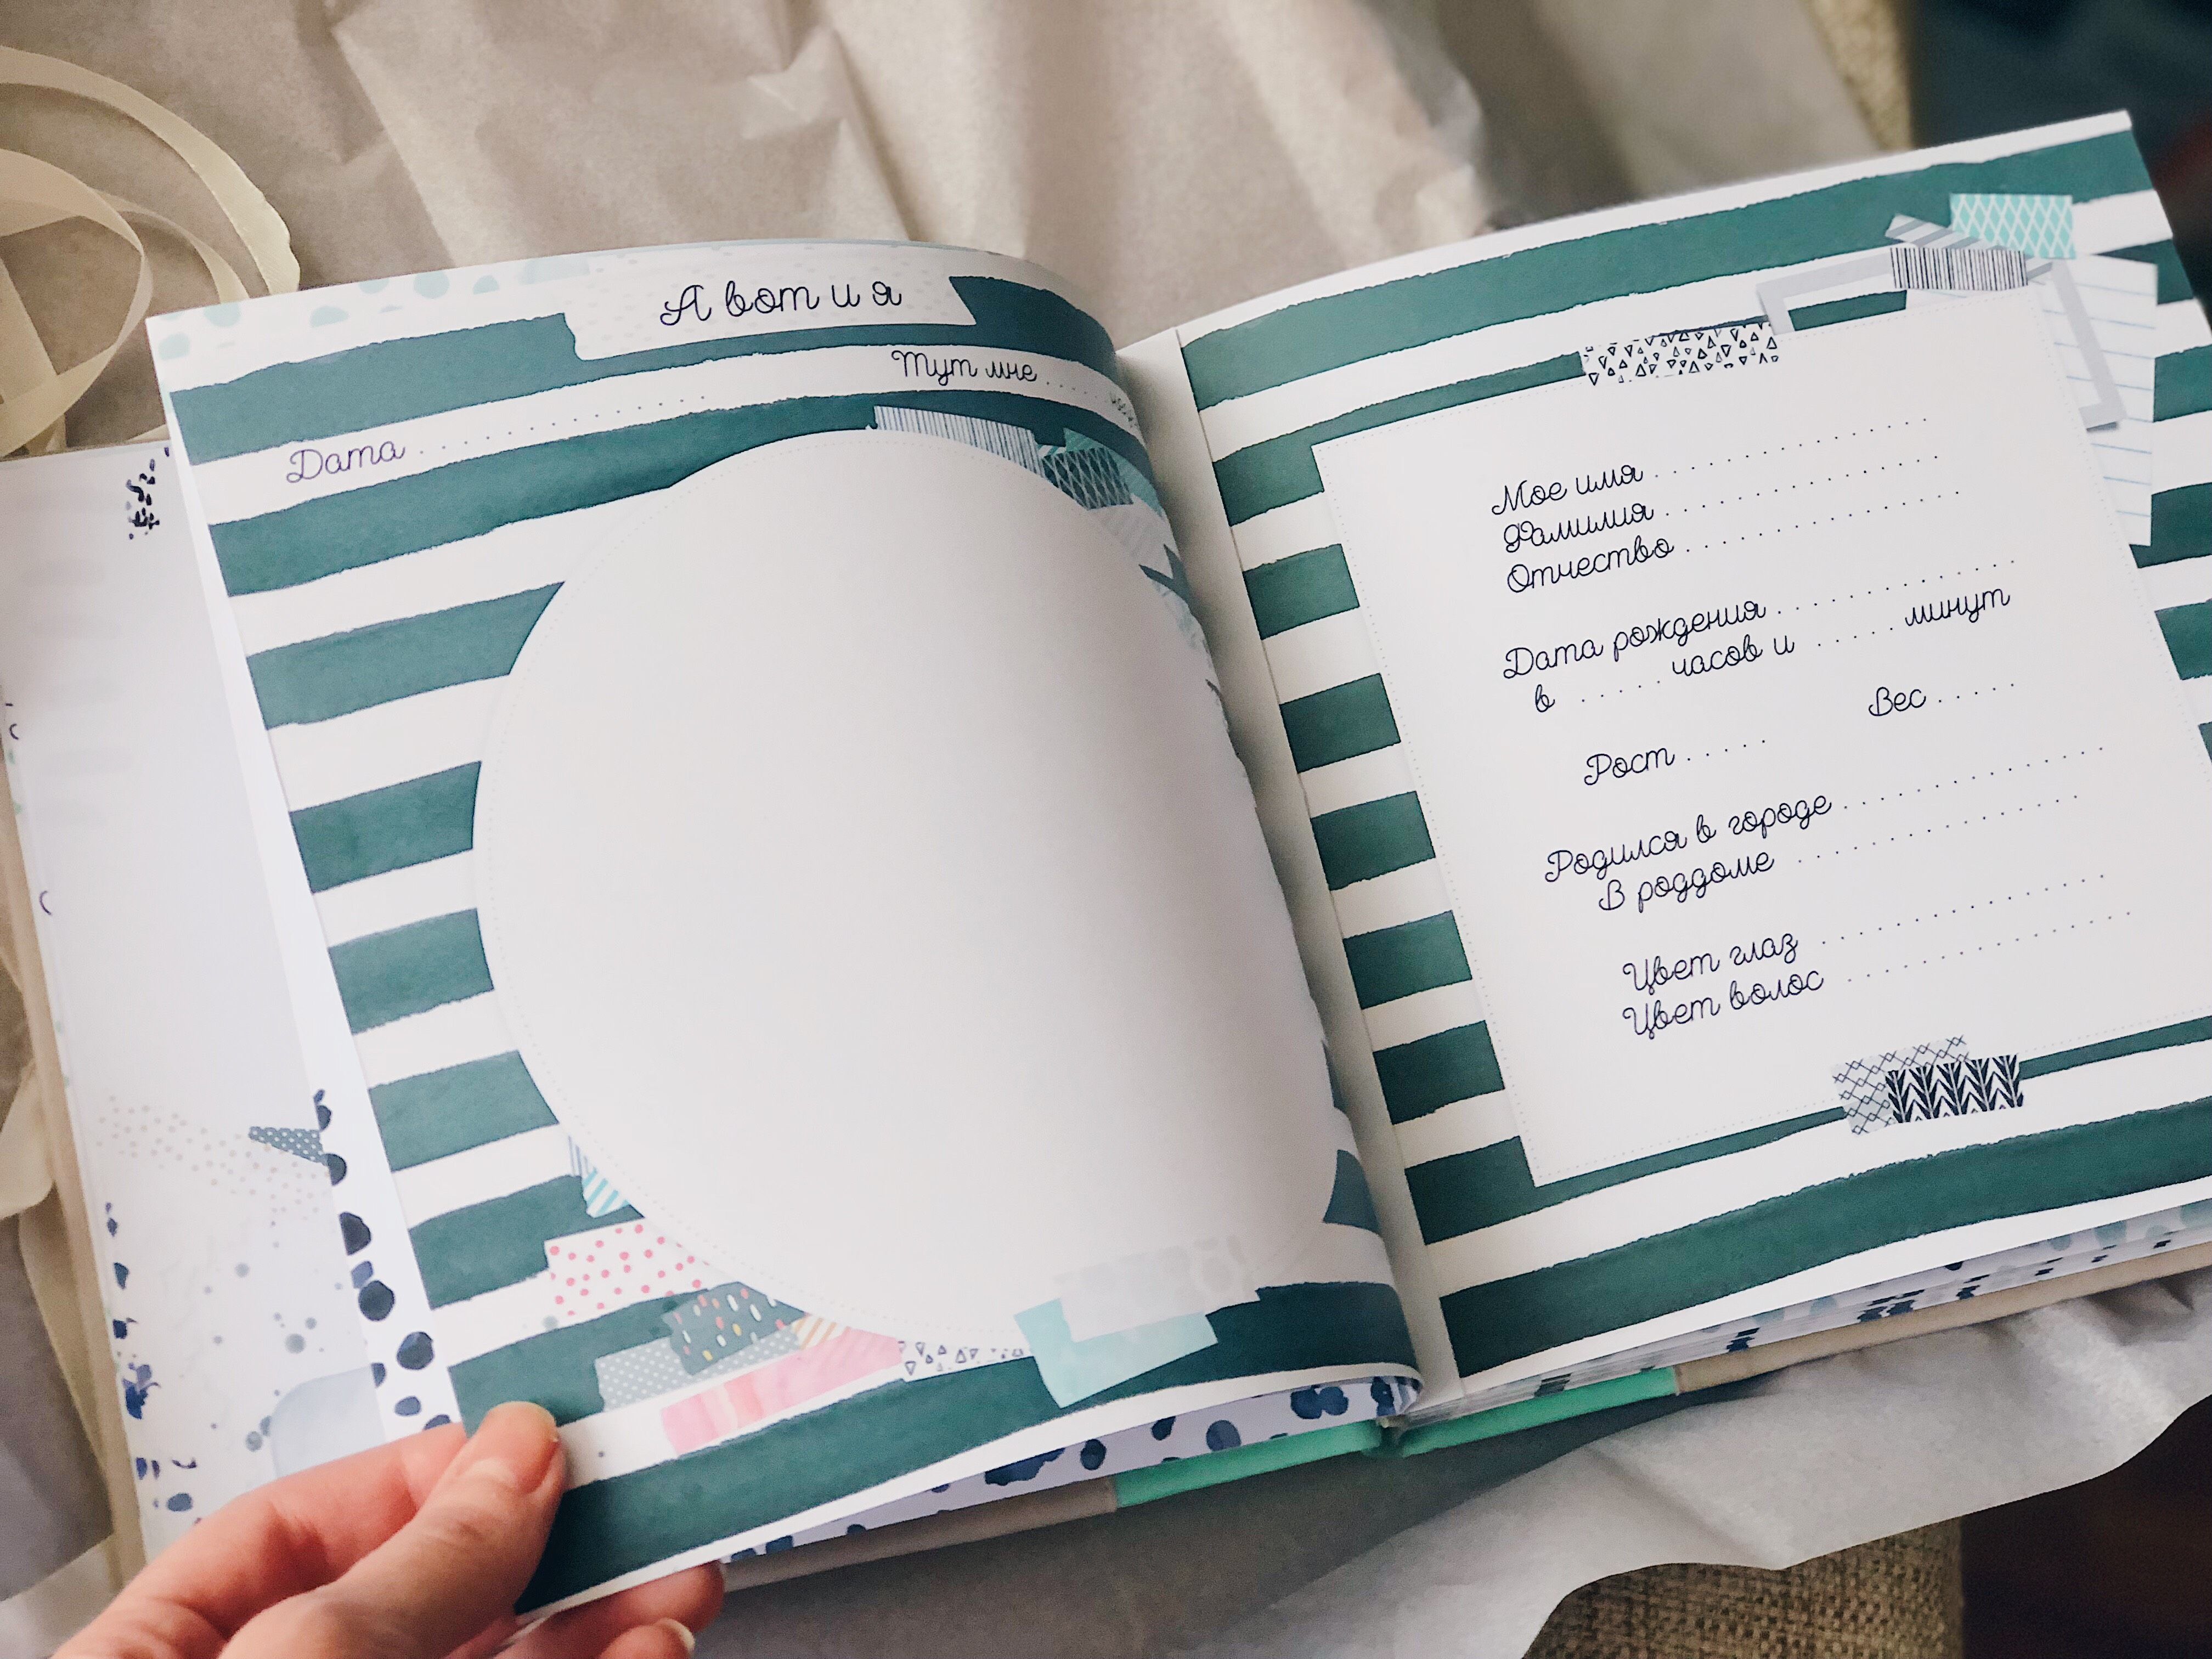 А вот и я
Тут мне . . . .
Дата . . . . . . . . . . . . .
Мое имя . . . . . . . . . . . . . . . .
Фамилия . . . . . . . . . . . . . . . .
Отчество . . . . . . . . . . . . . . . .
Дата рождения . . . . . . . . . . . . . .
в . . . . . часов и . . . . . минут
Рост . . . . . Вес . . . . .
Родился в городе . . . . . . . . . . . . . . .
В роддоме . . . . . . . . . . . . . . . .
Цвет глаз . . . . . . . . . . . . . . . .
Цвет волос . . . . . . . . . . . . . . . .